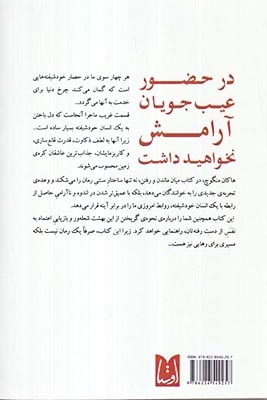 در حضور
عیب‌جویان
آرامش
نخواهید داشت
هر چهار سوی ما در حصار خودشیفته‌هایی
است که گمان می‌کنند چرخ دنیا برای
خدمت به آنها می‌گردد.
قسمت غریب ماجرا آنجاست که دل باختن
به یک انسان خودشیفته بسیار ساده است...
زیرا آنها به لطف ذکاوت، قدرت قانع‌سازی،
و کاریزمایشان، جذاب‌ترین عاشقان کره‌ی
زمین محسوب می‌شوند.
هاکان منگوچ، در کتاب میان ماندن و رفتن، نه تنها ساختار سنتی رمان را می‌شکند و وعده‌ی
تجربه‌ی جدیدی را به خوانندگان می‌دهد، بلکه با عمیق‌تر شدن در اندوه و ناآرامی حاصل از
رابطه با یک انسان خودشیفته، روابط امروزی ما را در برابر آینه قرار می‌دهد.
این کتاب همچنین شما را درباره‌ی نحوه‌ی گریختن از این بهشت شعله‌ور و بازیابی اعتماد به
نفس از دست رفته‌تان، راهنمایی خواهد کرد. زیرا این کتاب، صرفاً یک رمان نیست بلکه
مسیری برای رهایی نیز هست..